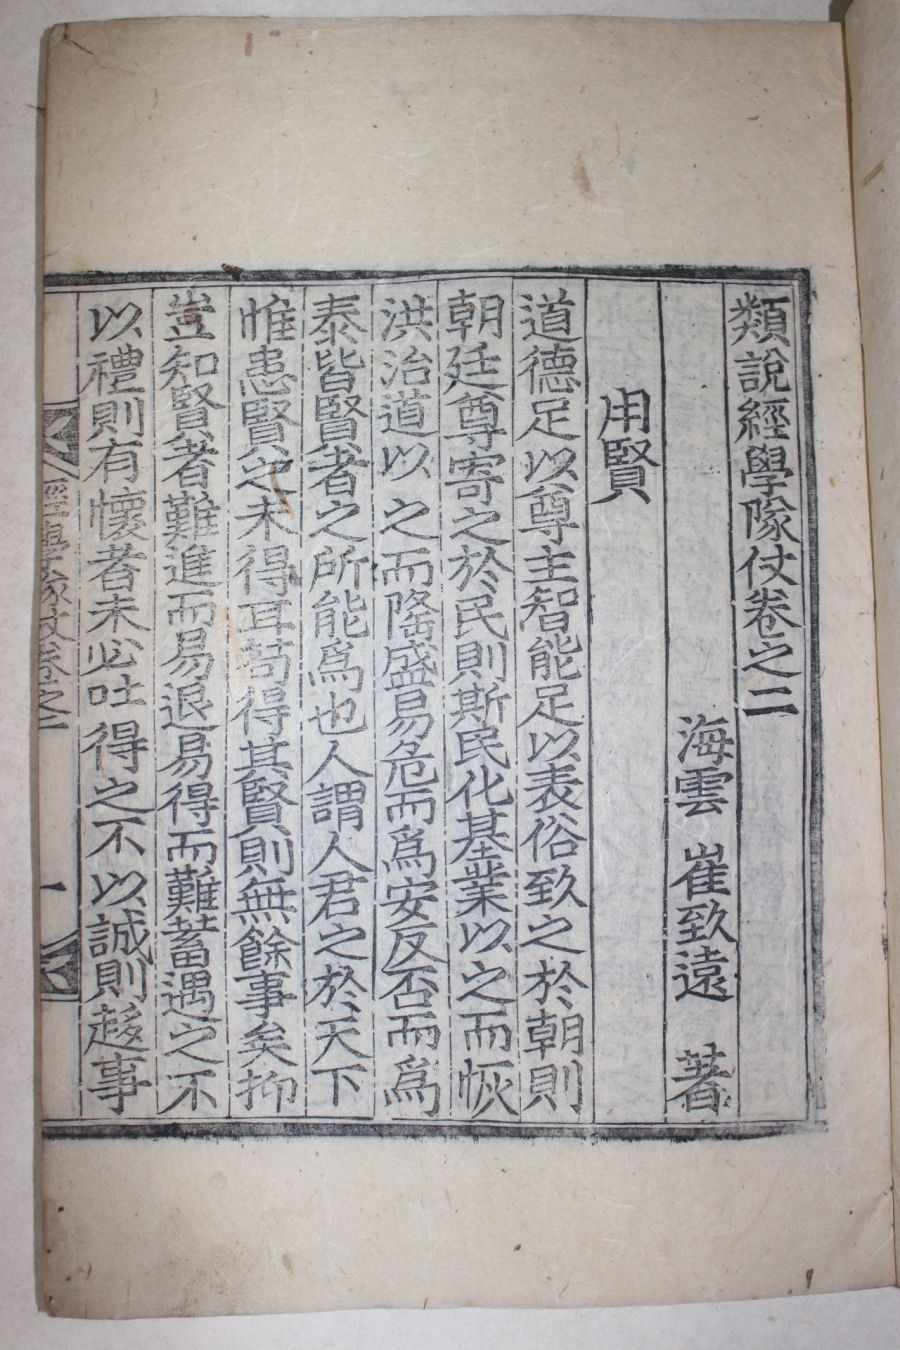 類說經學隊仗卷之二
海雲 崔致遠 著
用賢
道德足以尊主智能足以表俗致之於朝則
朝廷尊寄之於民則斯民化基業以之而恢
洪治道以之而隆盛易危而爲安反否而爲
泰皆賢者之所能爲也人謂人君之於天下
惟患賢之未得耳苟得其賢則無餘事矣抑
豈知賢者難進而易退易得而難蓄遇之不
以禮則有懷者未必吐得之不以誠則趍事
經學隊仗卷之二
一